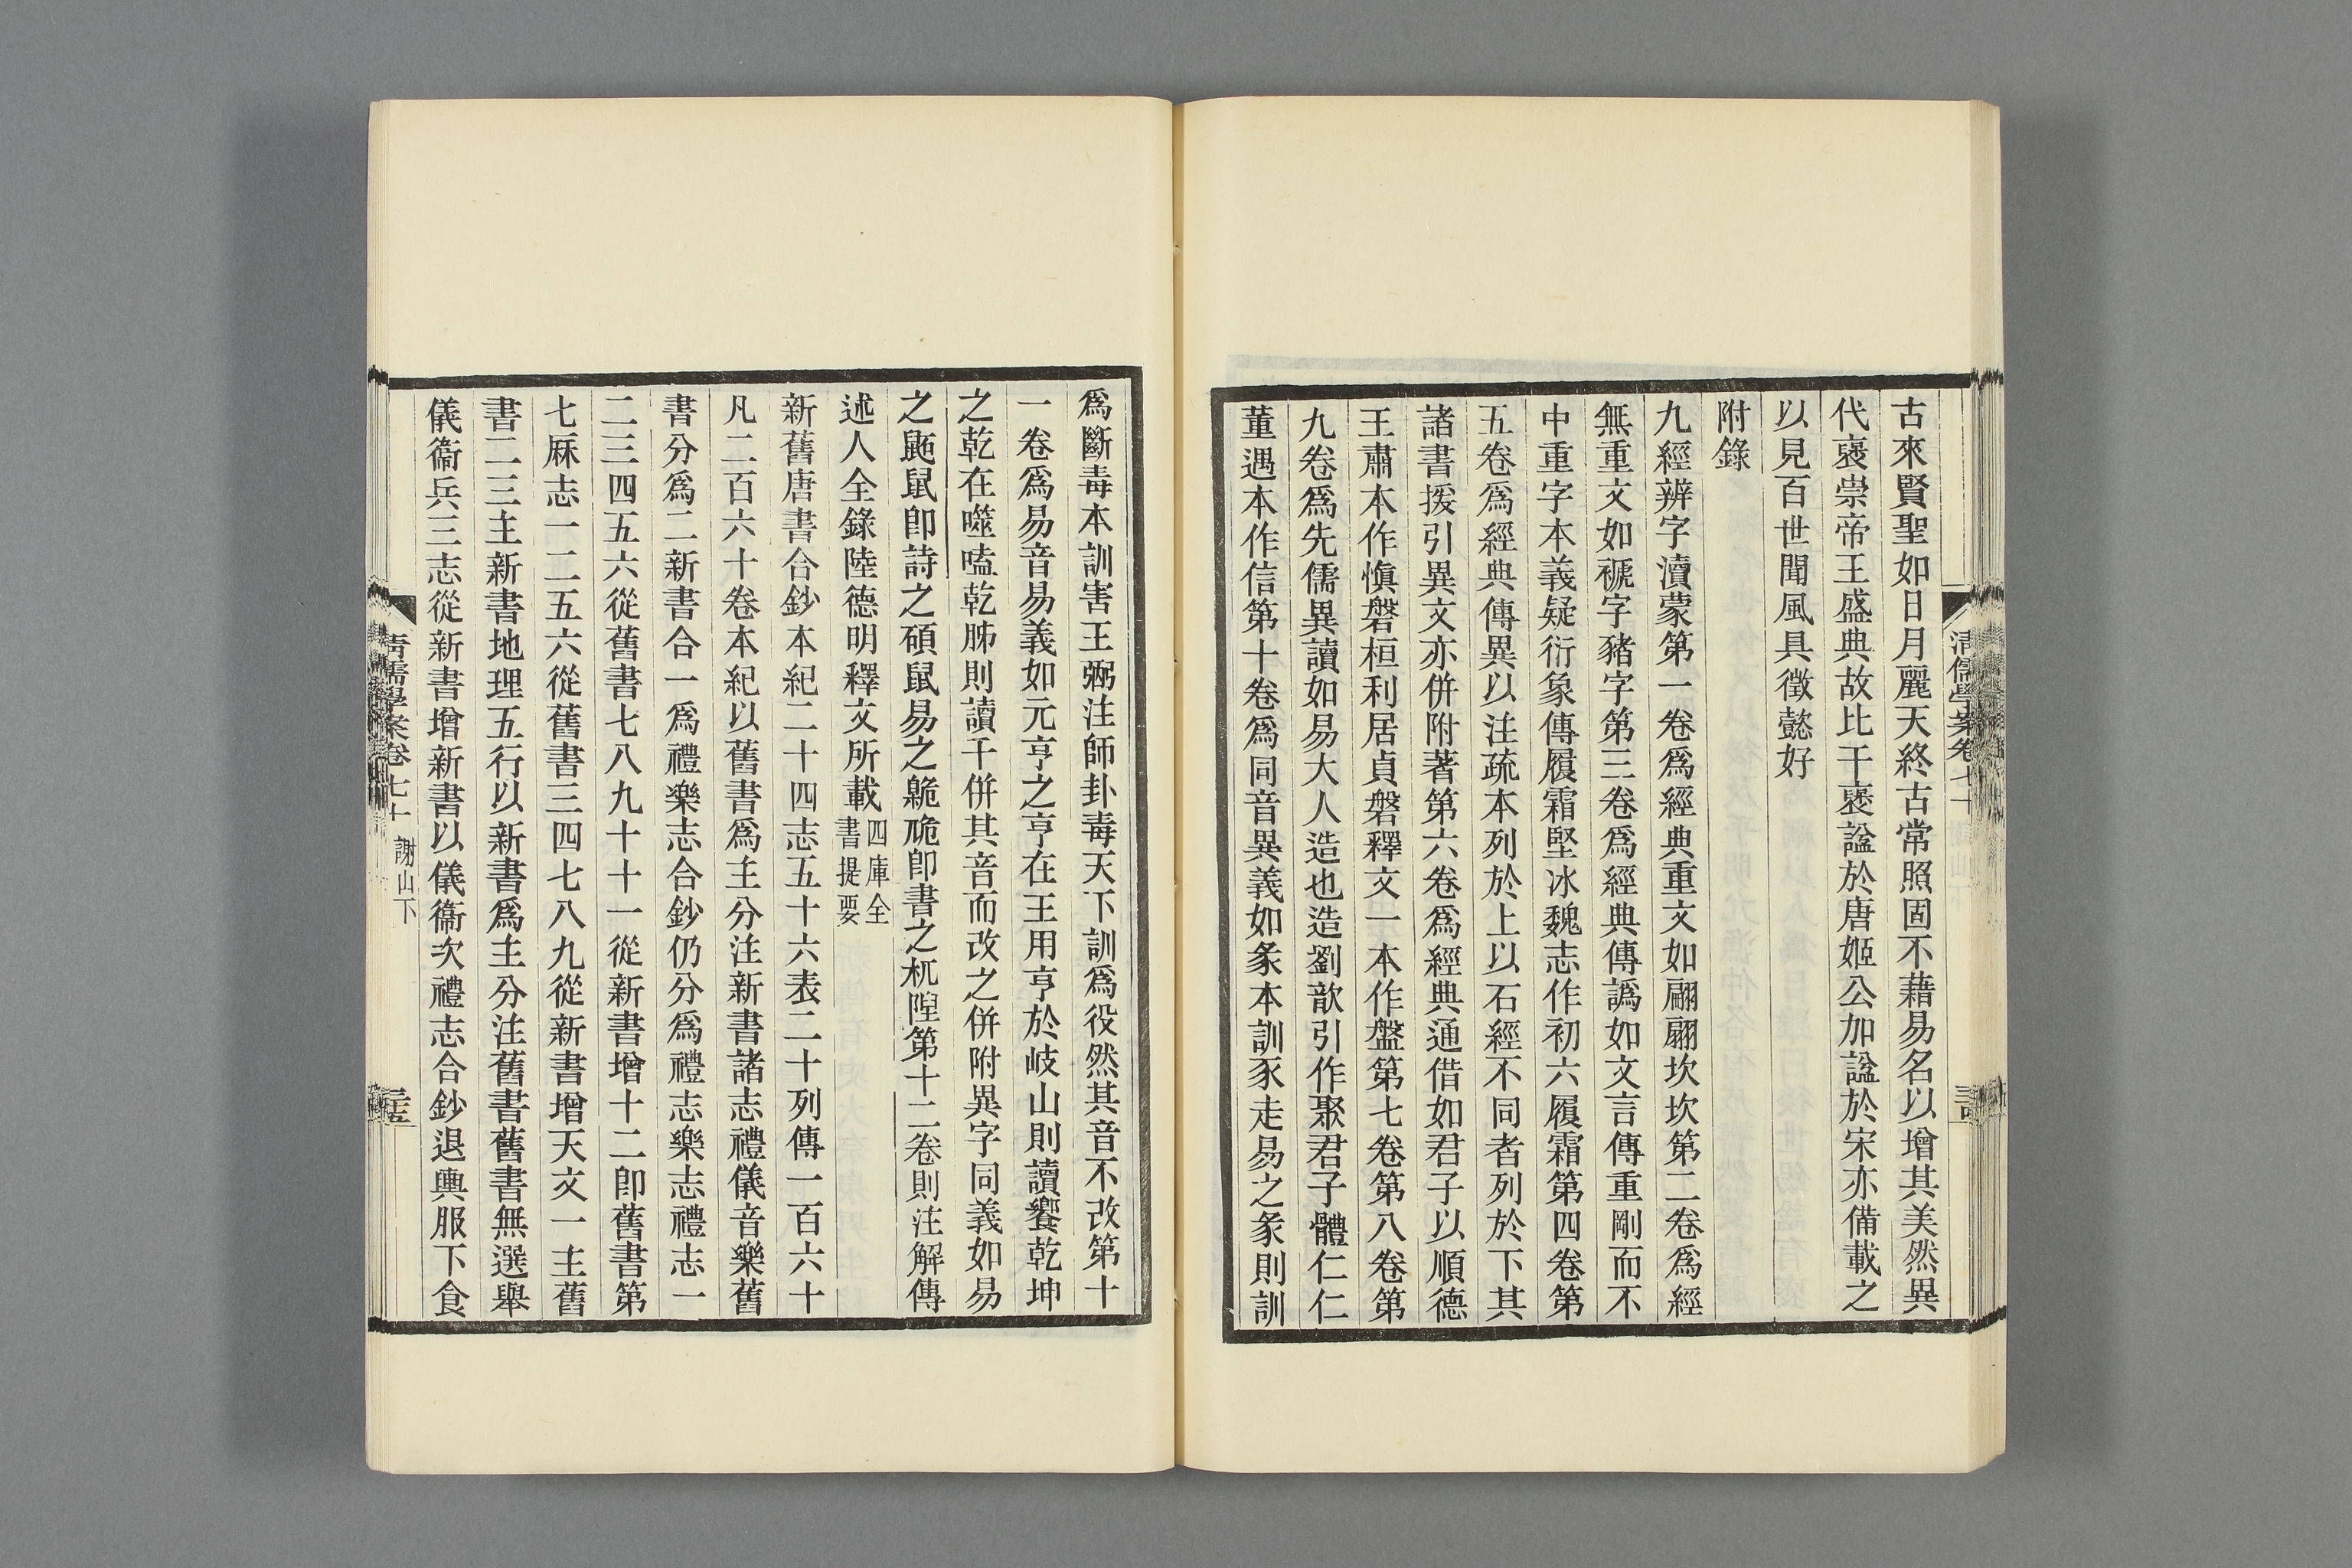 古來賢聖如日月麗天終古常照固不藉易名以增其美然異
代襃崇帝王盛典故比干襃諡於唐姬公加諡於宋亦備載之
以見百世聞風具徵懿好
附錄
九經辨字瀆蒙第一卷爲經典重文如翩翩坎坎第二卷爲經
無重文如褫字豬字第三卷爲經典傳譌如文言傳重剛而不
中重字本義疑衍象傳履霜堅冰魏志作初六履霜第四卷第
五卷爲經典傳異以注疏本列於上以石經不同者列於下其
諸書援引異文亦併附著第六卷爲經典通借如君子以順德
王肅本作愼磐桓利居貞磐釋文一本作盤第七卷第八卷第
九卷爲先儒異讀如易大人造也造劉歆引作聚君子體仁仁
董遇本作信第十卷爲同音異義如彖本訓豕走易之彖則訓
清儒學案卷七十
爲斷毒本訓害王弼注師卦毒天下訓爲役然其音不改第十
一卷爲易音易義如元亨之亨在王用亨於岐山則讀饗乾坤
之乾在噬嗑乾胏則讀干併其音而改之併附異字同義如易
之鼫鼠卽詩之碩鼠易之臲卼卽書之杌隉第十二卷則注解傳
述人全錄陸德明釋文所載四庫全書提要
新舊唐書合鈔本紀二十四志五十六表二十列傳一百六十
凡二百六十卷本紀以舊書爲主分注新書諸志禮儀音樂舊
書分爲二新書合一爲禮樂志合鈔仍分爲禮志樂志禮志一
二三四五六從舊書七八九十十一從新書增十二卽舊書第
七厤志一二五六從舊書三四七八九從新書增天文一主舊
書二三主新書地理五行以新書爲主分注舊書舊書無選舉
儀衞兵三志從新書增新書以儀衞次禮志合鈔退輿服下食
清儒學案卷七十 謝山下 三五